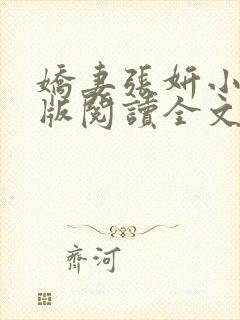 嬌妻張妍小
版閱讀全文
齊河